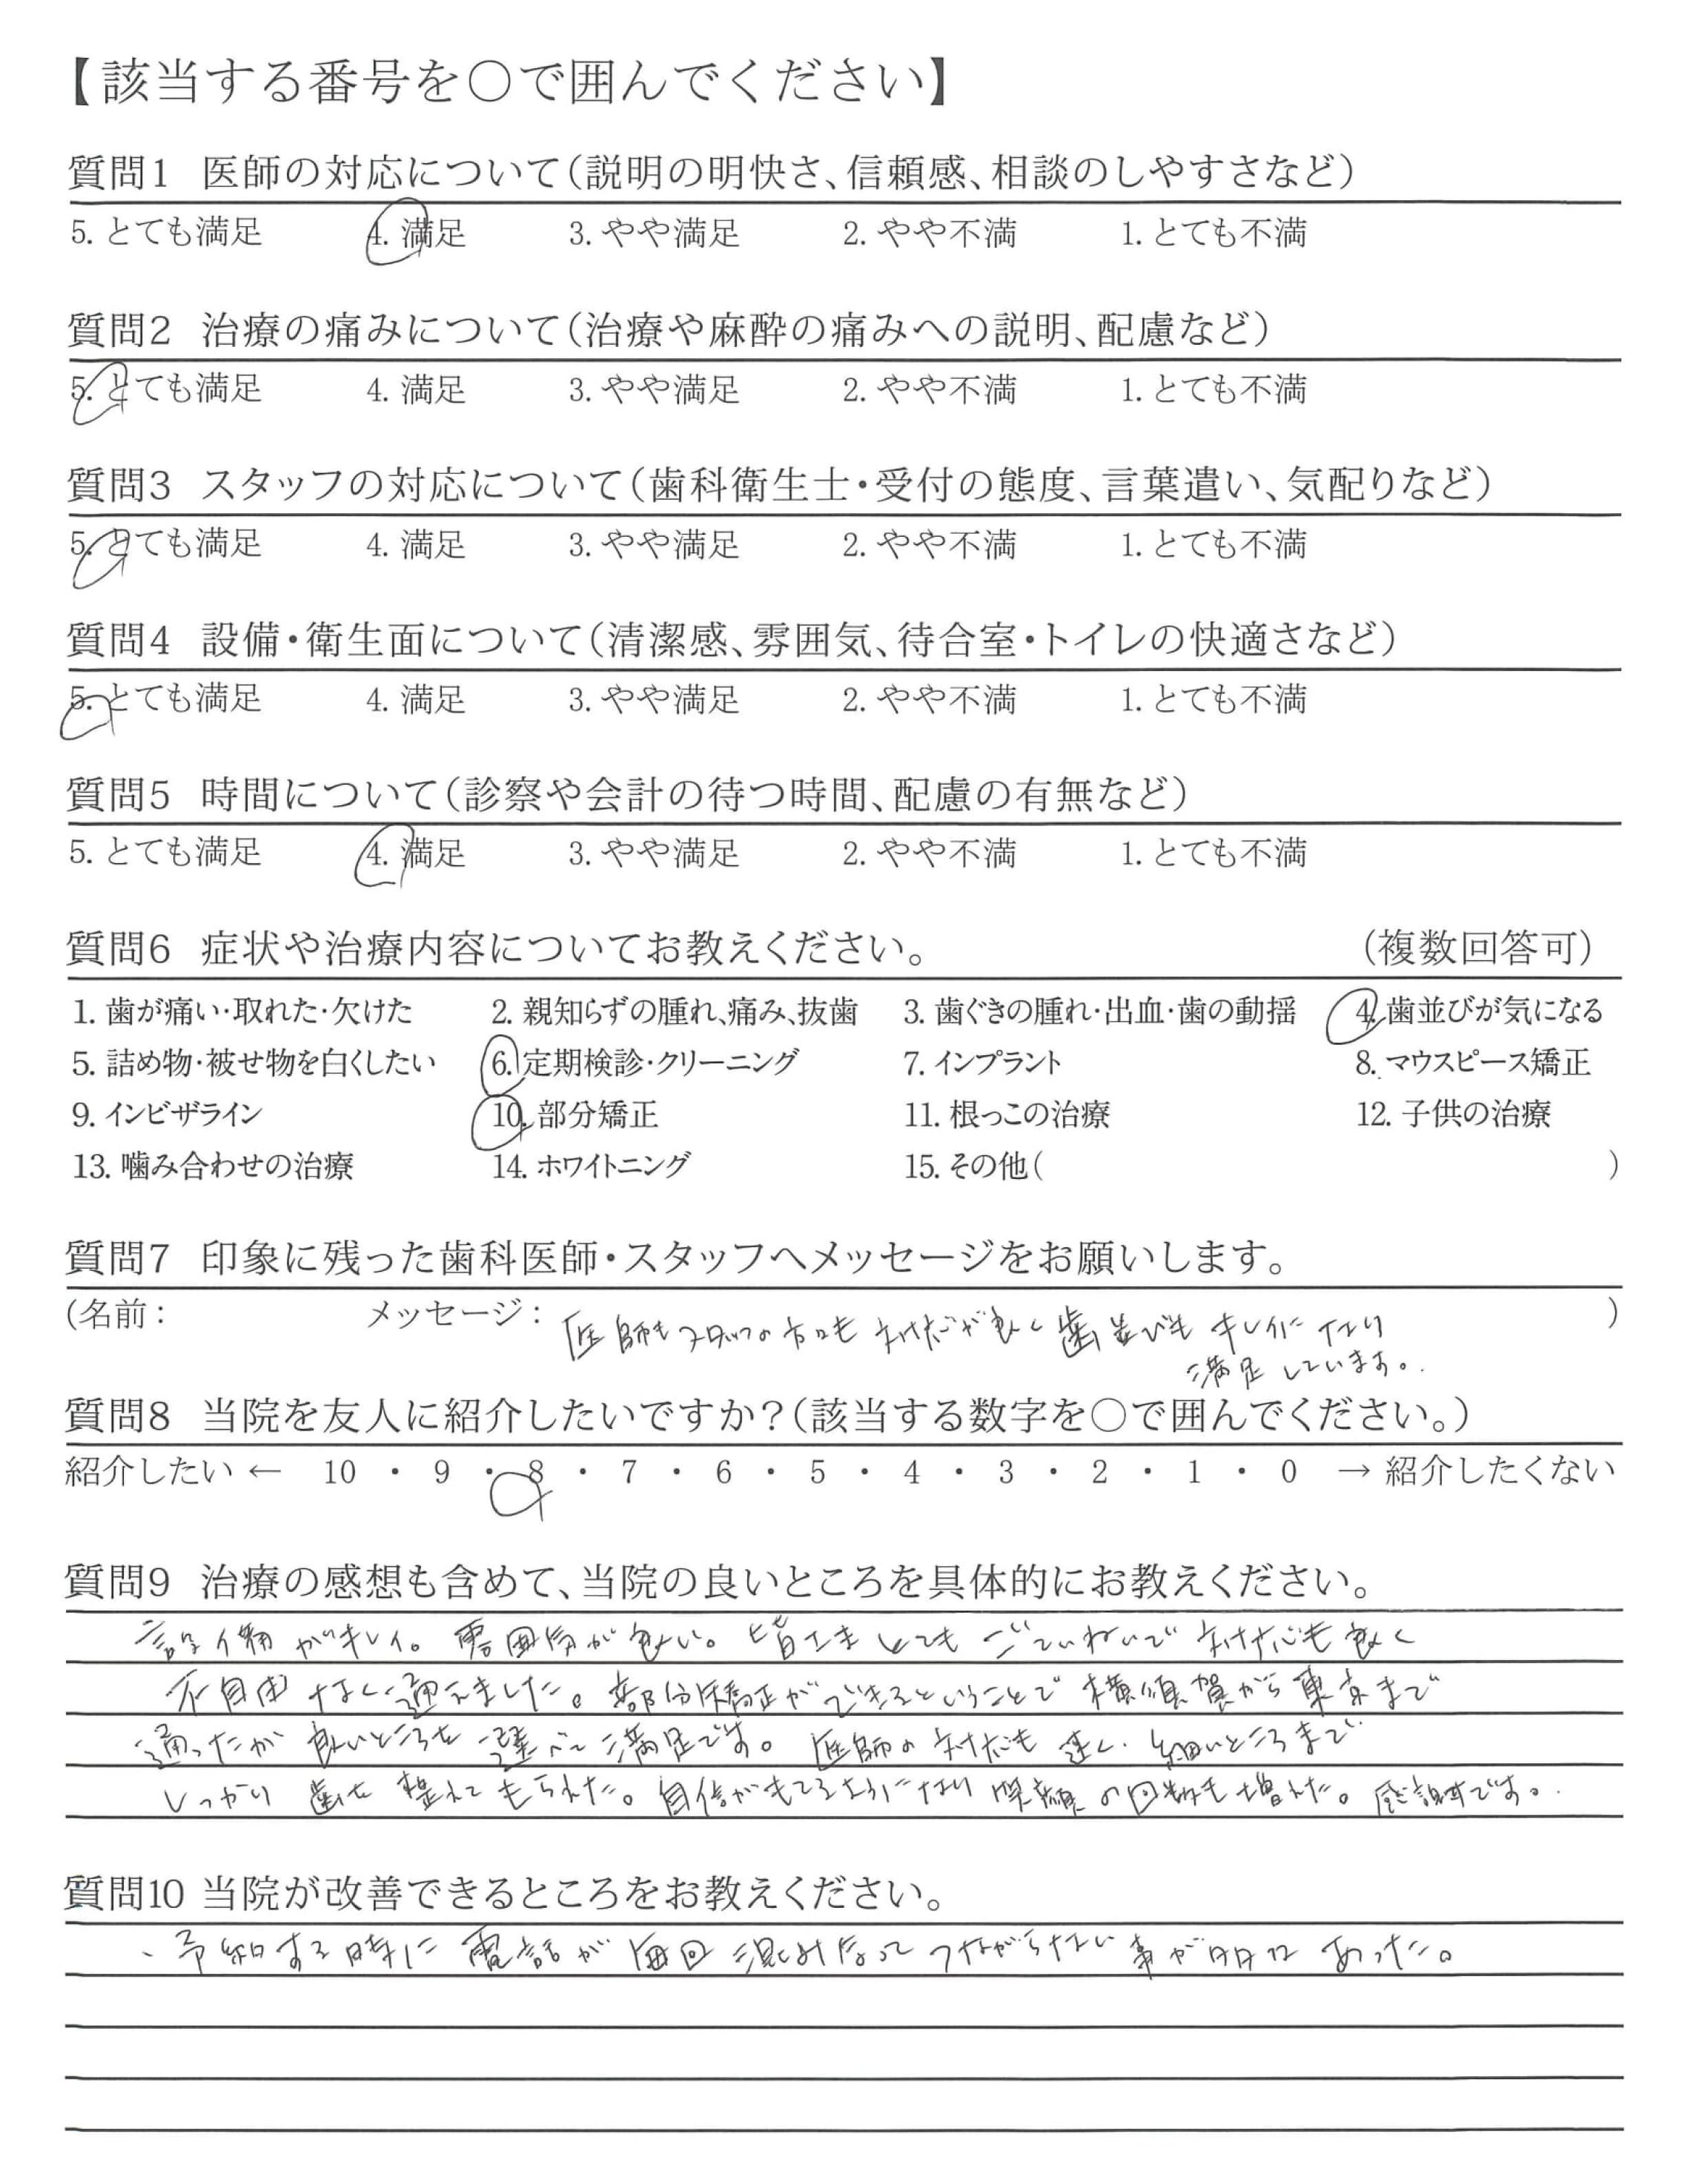 【該当する番号を○で囲んでください】
質問1 医師の対応について(説明の明快さ、信頼感、相談のしやすさなど)
5. とても満足 4. 満足 3. やや満足 2. やや不満 1. とても不満
質問2 治療の痛みについて(治療や麻酔の痛みへの説明、配慮など)
5. とても満足 4. 満足 3. やや満足 2. やや不満 1. とても不満
質問3 スタッフの対応について(歯科衛生士・受付の態度、言葉遣い、気配りなど)
5. とても満足 4. 満足 3. やや満足 2. やや不満 1. とても不満
質問4 設備・衛生面について(清潔感、雰囲気、待合室・トイレの快適さなど)
5. とても満足 4. 満足 3. やや満足 2. やや不満 1. とても不満
質問5 時間について(診察や会計の待つ時間、配慮の有無など)
5. とても満足 4. 満足 3. やや満足 2. やや不満 1. とても不満
質問6 症状や治療内容についてお教えください。 (複数回答可)
1. 歯が痛い・取れた・欠けた 2. 親知らずの腫れ、痛み、抜歯 3. 歯ぐきの腫れ・出血・歯の動揺 4. 歯並びが気になる
5. 詰め物・被せ物を白くしたい 6. 定期検診・クリーニング 7. インプラント 8. マウスピース矯正
9. インビザライン 10. 部分矯正 11. 根っこの治療 12. 子供の治療
13. 噛み合わせの治療 14. ホワイトニング 15. その他( )
質問7 印象に残った歯科医師・スタッフへメッセージをお願いします。
(名前: メッセージ: 医師もスタッフの方々も対応が良く歯並びもキレイになり )
満足しています。
質問8 当院を友人に紹介したいですか?(該当する数字を○で囲んでください。)
紹介したい ← 10 ・ 9 ・ 8 ・ 7 ・ 6 ・ 5 ・ 4 ・ 3 ・ 2 ・ 1 ・ 0 → 紹介したくない
質問9 治療の感想も含めて、当院の良いところを具体的にお教えください。
設備がキレイ。雰囲気が良い。皆さまとてもごていねいで対応も良く
不自由なく通えました。部分矯正ができるということで横須賀から東京まで
通ったが良いところを選べて満足です。医師の対応も速く、細いところまで
しっかり歯を整えてもらえた。自信がもてるようになり笑顔の回数も増えた。感謝です。
質問10 当院が改善できるところをお教えください。
、予約する時に電話が毎回混みあって つながらない事が あった。